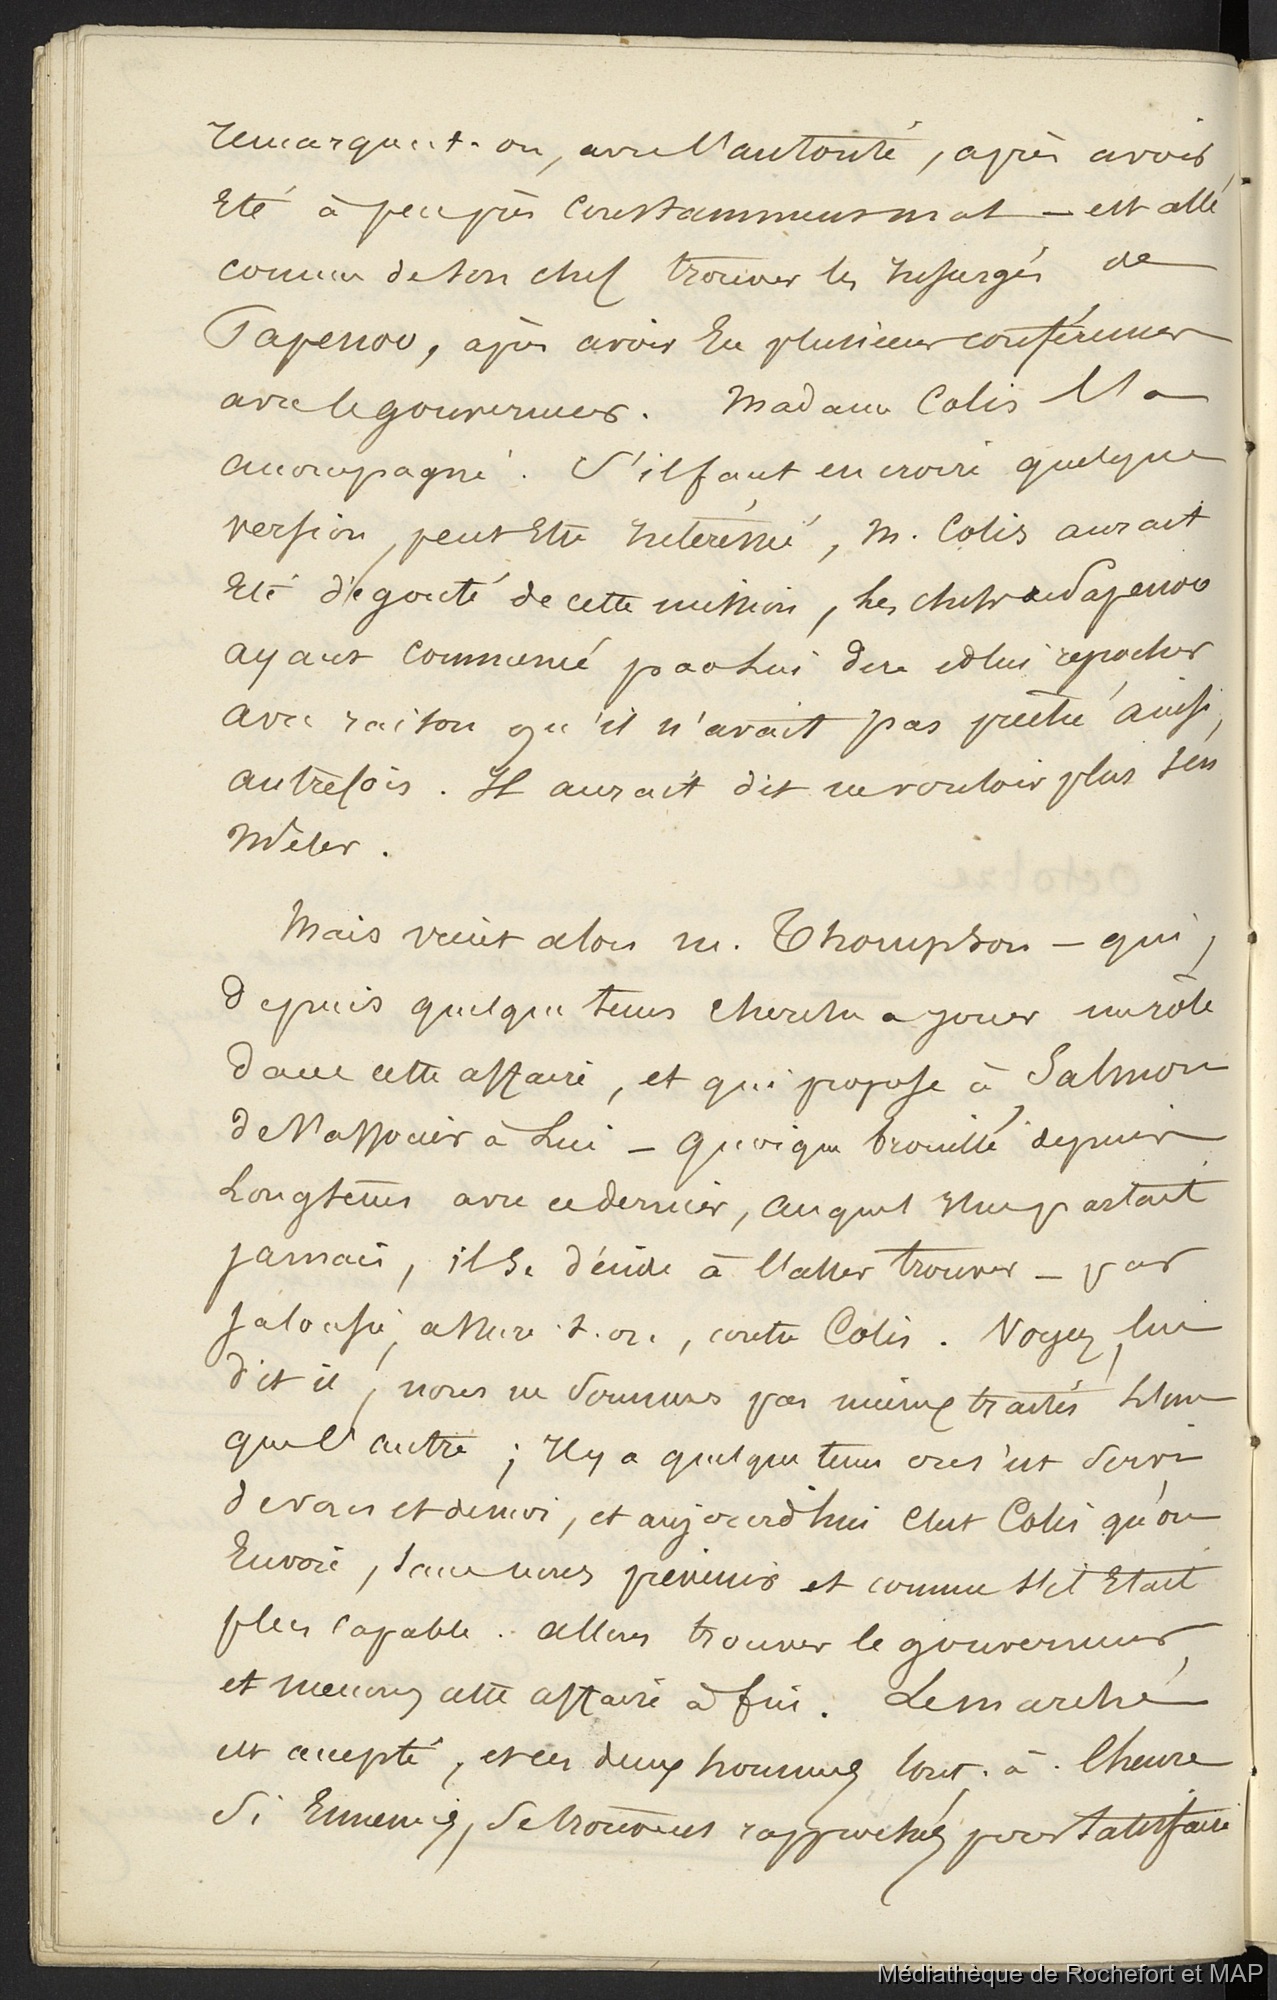 remarquent-on, avec l'autorité, après avoir
Eté à peu près constamment mal — est allé
comme de son chef trouver les Insurgés de
Papenoo, après avoir Eu plusieurs conférences
avec le gouverneur. Madame Colis l'a
accompagné. S'il faut en croire quelque
version, peut Etre Intéressée, M. Colis aurait
Eté dégouté de cette mission, les chefs de Papenoo
ayant commencé par lui dire et lui reprocher
avec raison qu'il n'avait pas prêché ainsi,
autrefois. Il aurait dit ne vouloir plus s'en
Mêler.
Mais vient alors m. Thompson — qui,
depuis quelque tems cherche a jouer un rôle
dans cette affaire, et qui propose à Salmon
de l'associer à lui — quoique brouillé depuis
longtems avec ce dernier, auquel Il ne parlait
jamais, il se décide à l'aller trouver — par
jalousie, assure-t-on, contre Colis. Voyez, lui
dit il, nous ne sommes pas mieux traités l'un
que l'autre ; Il y a quelque tems on s'est servi
de vous et de moi, et aujourd'hui c'est Colis qu'on
Envoie, sans nous prévenir et comme s'il Etait
plus capable. allons trouver le gouverneur,
et menons cette affaire à fin. Le marché
est accepté, et ces deux hommes tout-à-l'heure
si Ennemis, se trouvent rapprochés pour satisfaire
Octobre
Médiathèque de Rochefort et MAP